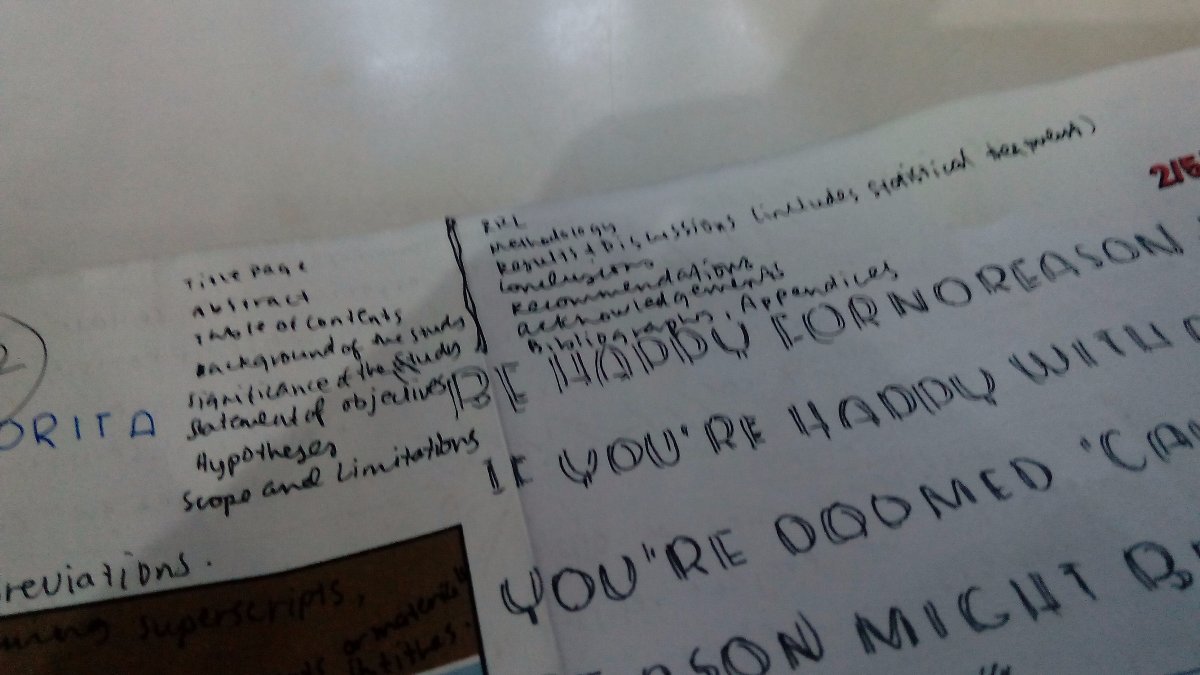 Title Page
Abstract
Table of Contents
Background of the Study
Significance of the Study
Statement of objectives
Hypotheses
Scope and Limitations
RRL
Methodology
Results + Discussions (includes statistical treatment)
Conclusions
Recommendations
Acknowledgements
Bibliography, Appendices
2/5
BE HAPPY FOR NO REASON
IF YOU'RE HAPPY WITH
YOU'RE DOOMED 'CA
SON MIGHT B
ORITA
reviations.
superscripts,